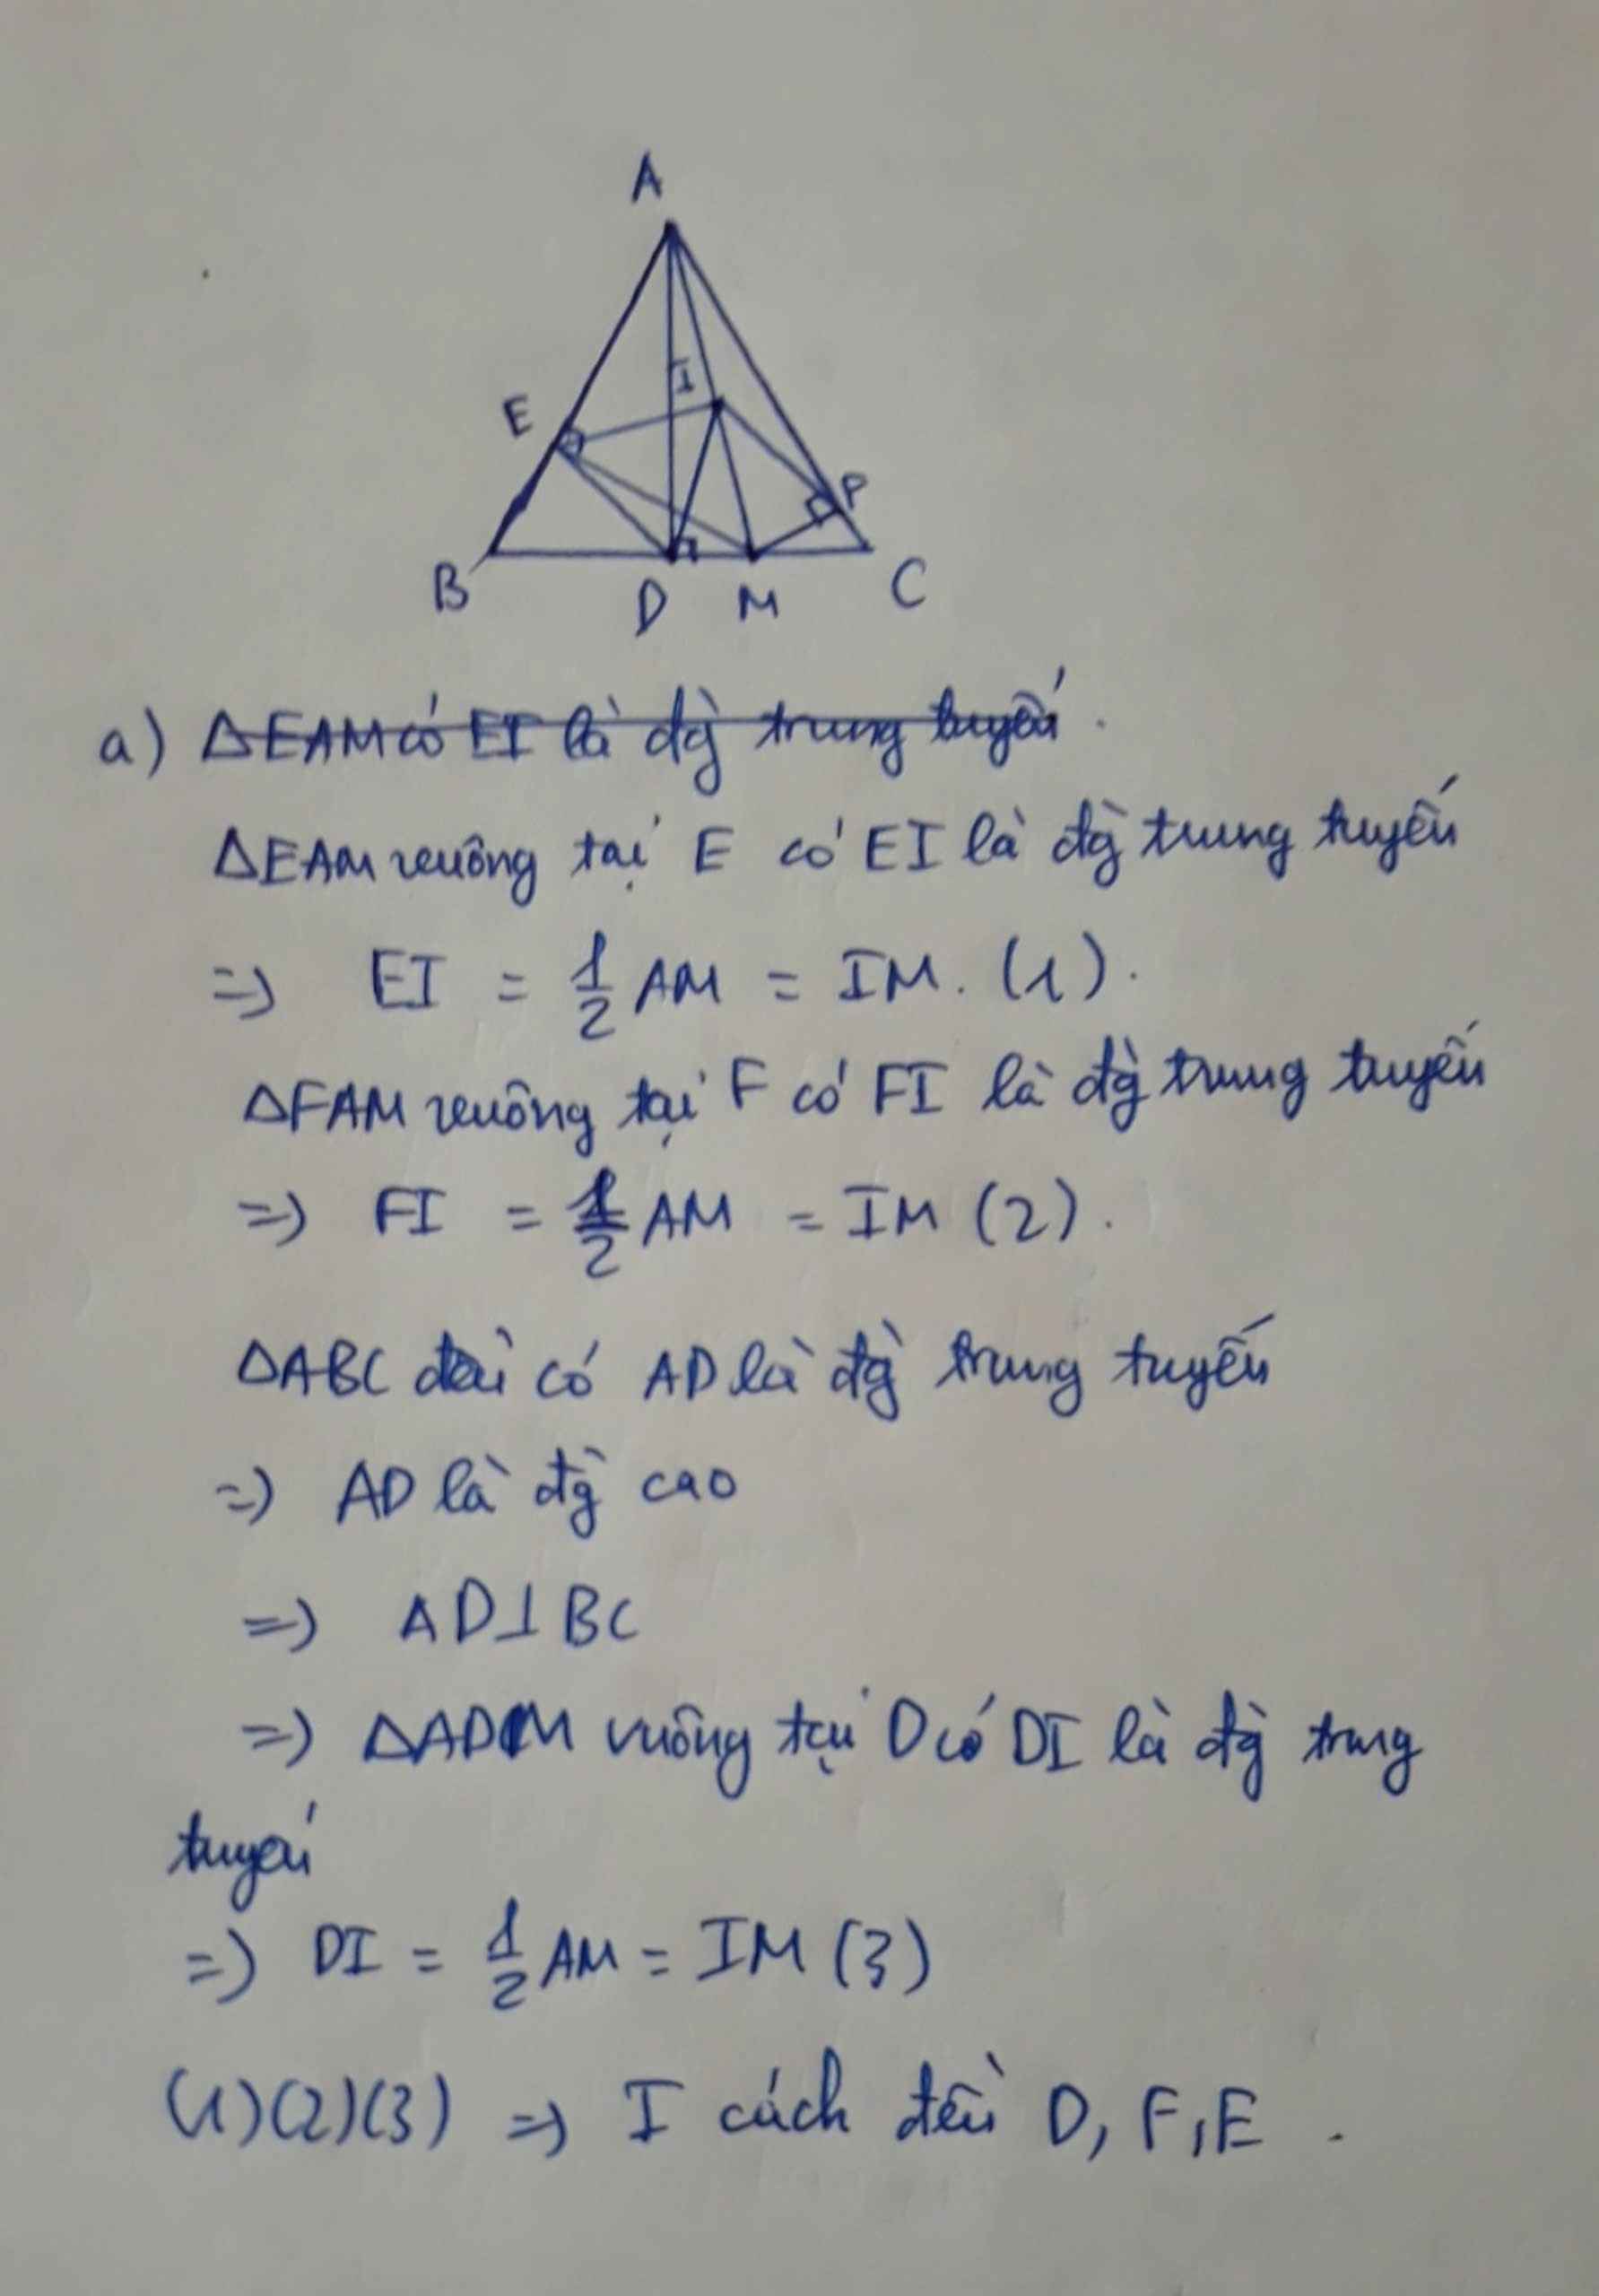 A
I
E
F
B
D
M
C
a) ΔEAM có EI là đg̀ trung tuyến.
ΔEAM vuông tại E có EI là đg̀ trung tuyến
=> EI = 1/2 AM = IM. (1).
ΔFAM vuông tại F có FI là đg̀ trung tuyến
=> FI = 1/2 AM = IM (2).
ΔABC đều có AD là đg̀ trung tuyến
=> AD là đg̀ cao
=> AD⊥BC
=> ΔADM vuông tại D có DI là đg̀ trung
tuyến
=> DI = 1/2 AM = IM (3)
(1)(2)(3) => I cách đều D, F, E.